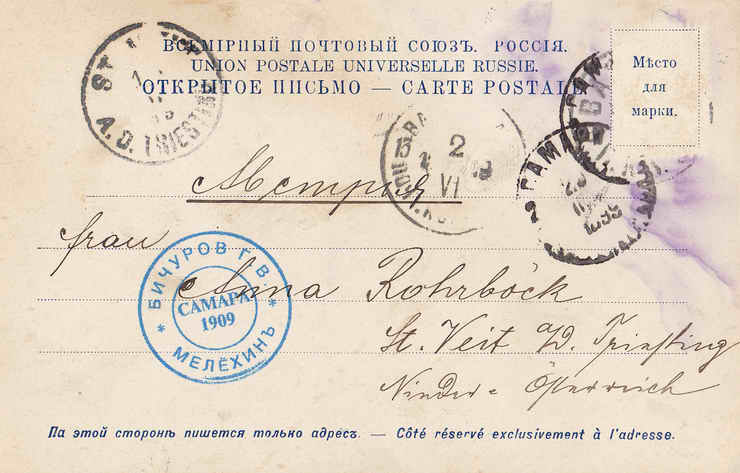 ВСЕМІРНЫЙ ПОЧТОВЫЙ СОЮЗЪ. РОССІЯ.
UNION POSTALE UNIVERSELLE RUSSIE.
ОТКРЫТОЕ ПИСЬМО — CARTE POSTALE
Мѣсто
для
марки.
ST.
A. D. TRIESTING
2
VI
САМАРА
1899
Австрія
frau
Anna Rohrböck
St. Veit a/d. Triesting
Nieder-Österreich
БИЧУРОВ Г. В.
САМАРА
1909
* МЕЛЁХИНЪ *
Па этой сторонѣ пишется только адресъ. — Côté réservé exclusivement à l'adresse.